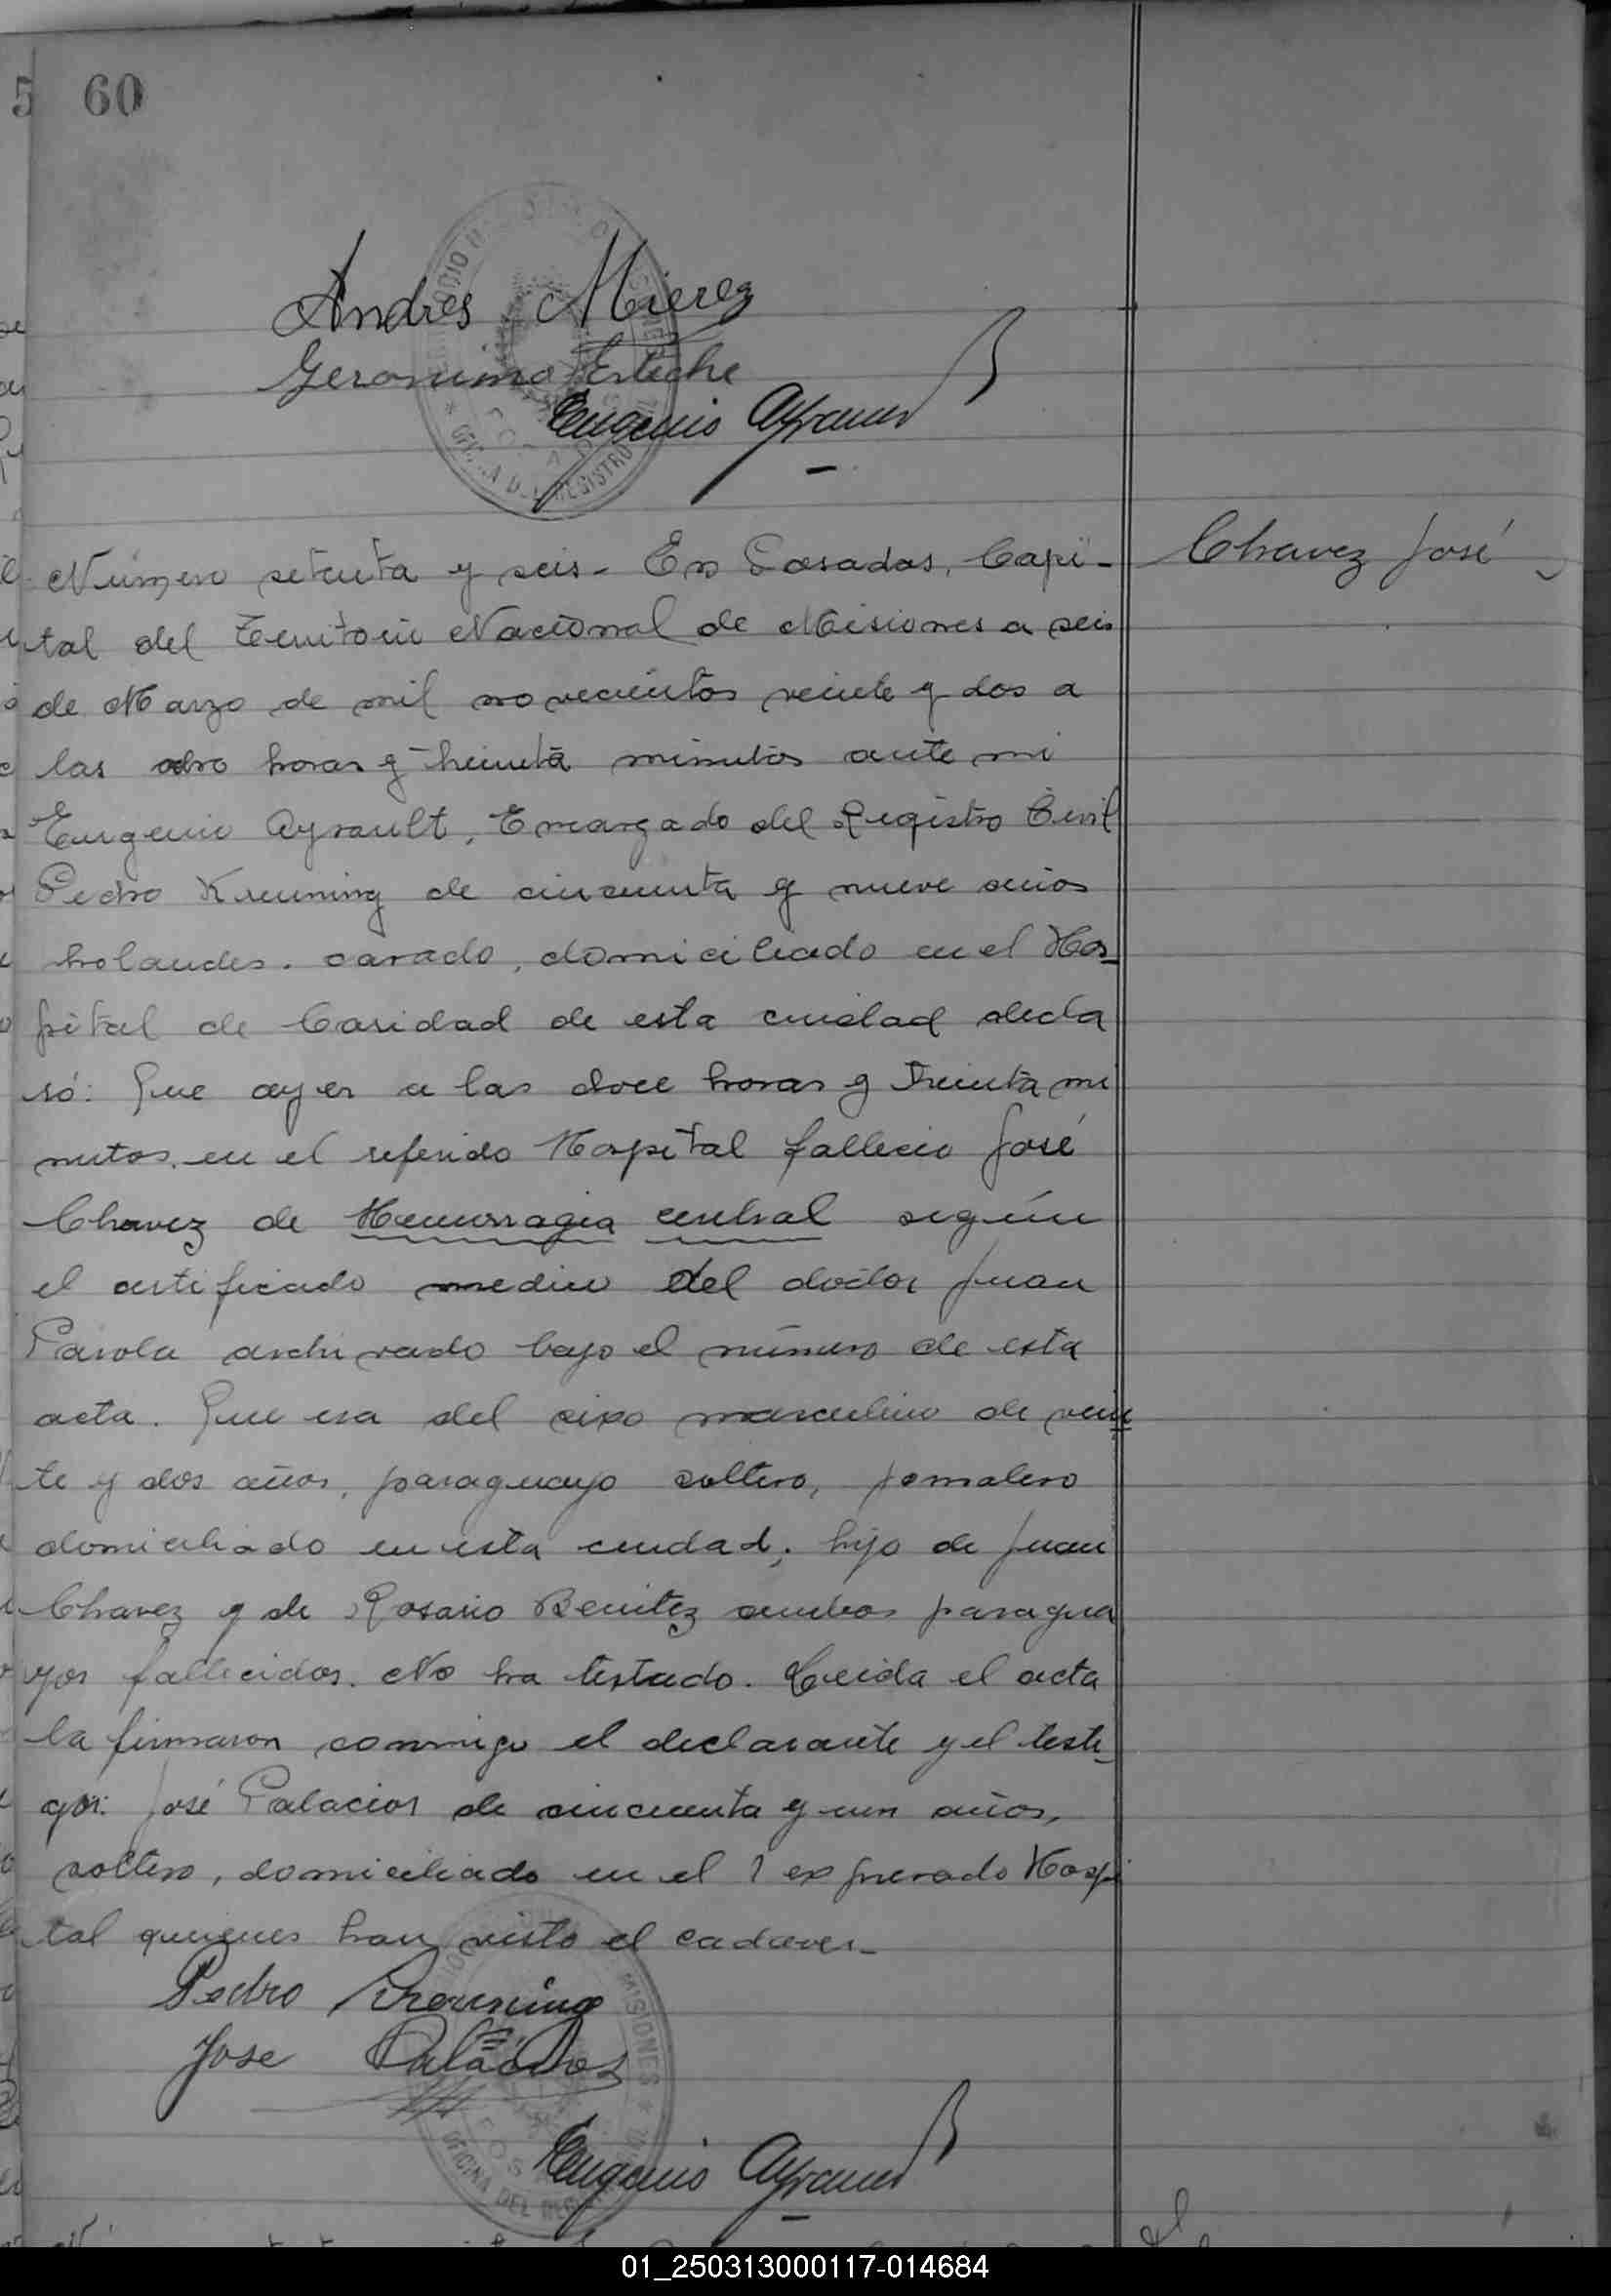 60
Andres Mierez
Geronimo Esteche
Eugenio Ayrault
Número setenta y seis - En Posadas, Capi-
Chavez José
tal del Territorio Nacional de Misiones a seis
de Marzo de mil novecientos veinte y dos a
las ocho horas y treinta minutos ante mi
Eugenio Ayrault, Encargado del Registro Civil
Pedro Kreuning de cincuenta y nueve años
holandes. casado, domiciliado en el Hos-
pital de Caridad de esta ciudad decla
ró: Que ayer a las doce horas y treinta mi
nutos. en el referido Hospital fallecio José
Chavez de Hemorragia central según
el certificado medico del doctor Juan
Parola archivado bajo el número de esta
acta. Que era del sexo masculino de vein
te y dos años, paraguayo soltero, jornalero
domiciliado en esta ciudad; hijo de Juan
Chavez y de Rosario Benitez ambos paragua
yos fallecidos. No ha testado. Leida el acta
la firmaron conmigo el declarante y el testi-
go: José Palacios de cincuenta y un años,
soltero, domiciliado en el expresado Hospi
tal quienes han visto el cadaver-
Pedro Kreuning
Jose Palacios
Eugenio Ayrault
01_250313000117-014684